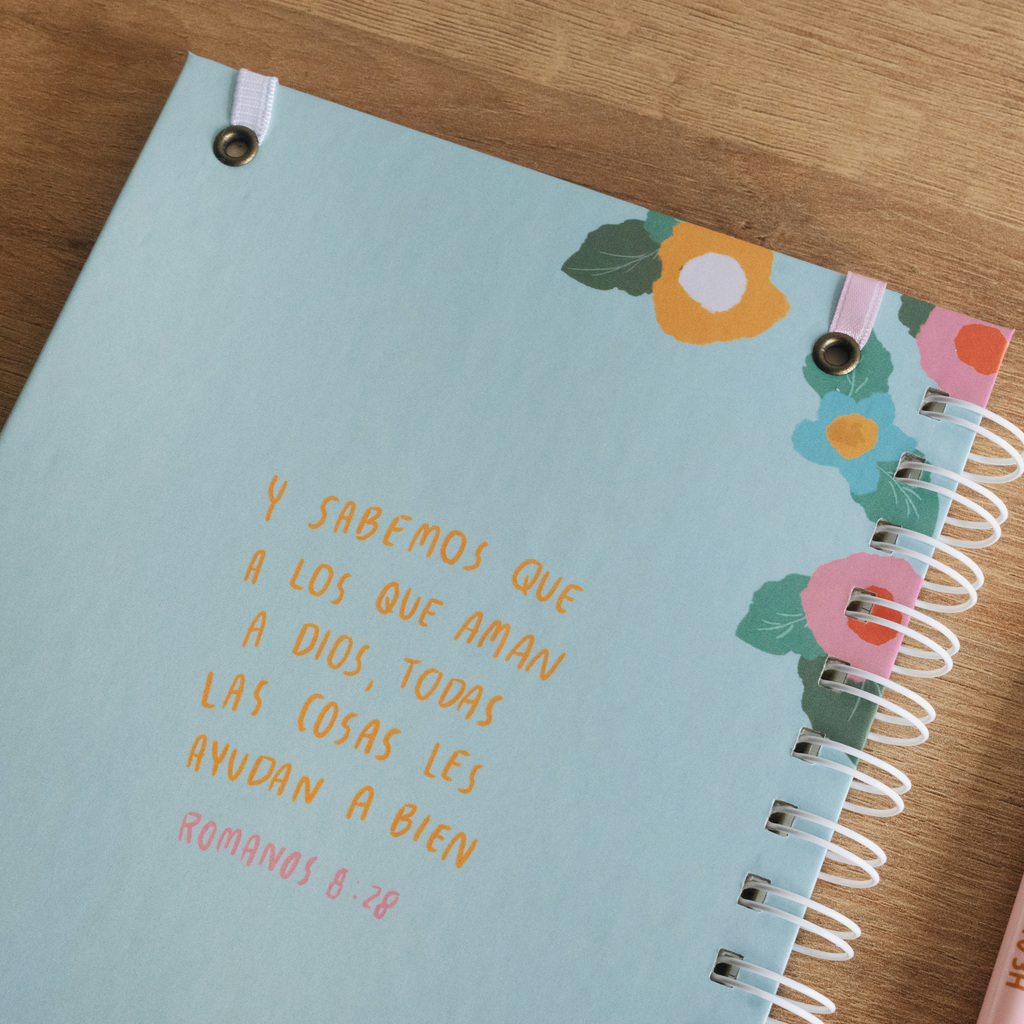 Y SABEMOS QUE
A LOS QUE AMAN
A DIOS, TODAS
LAS COSAS LES
AYUDAN A BIEN
ROMANOS 8:28